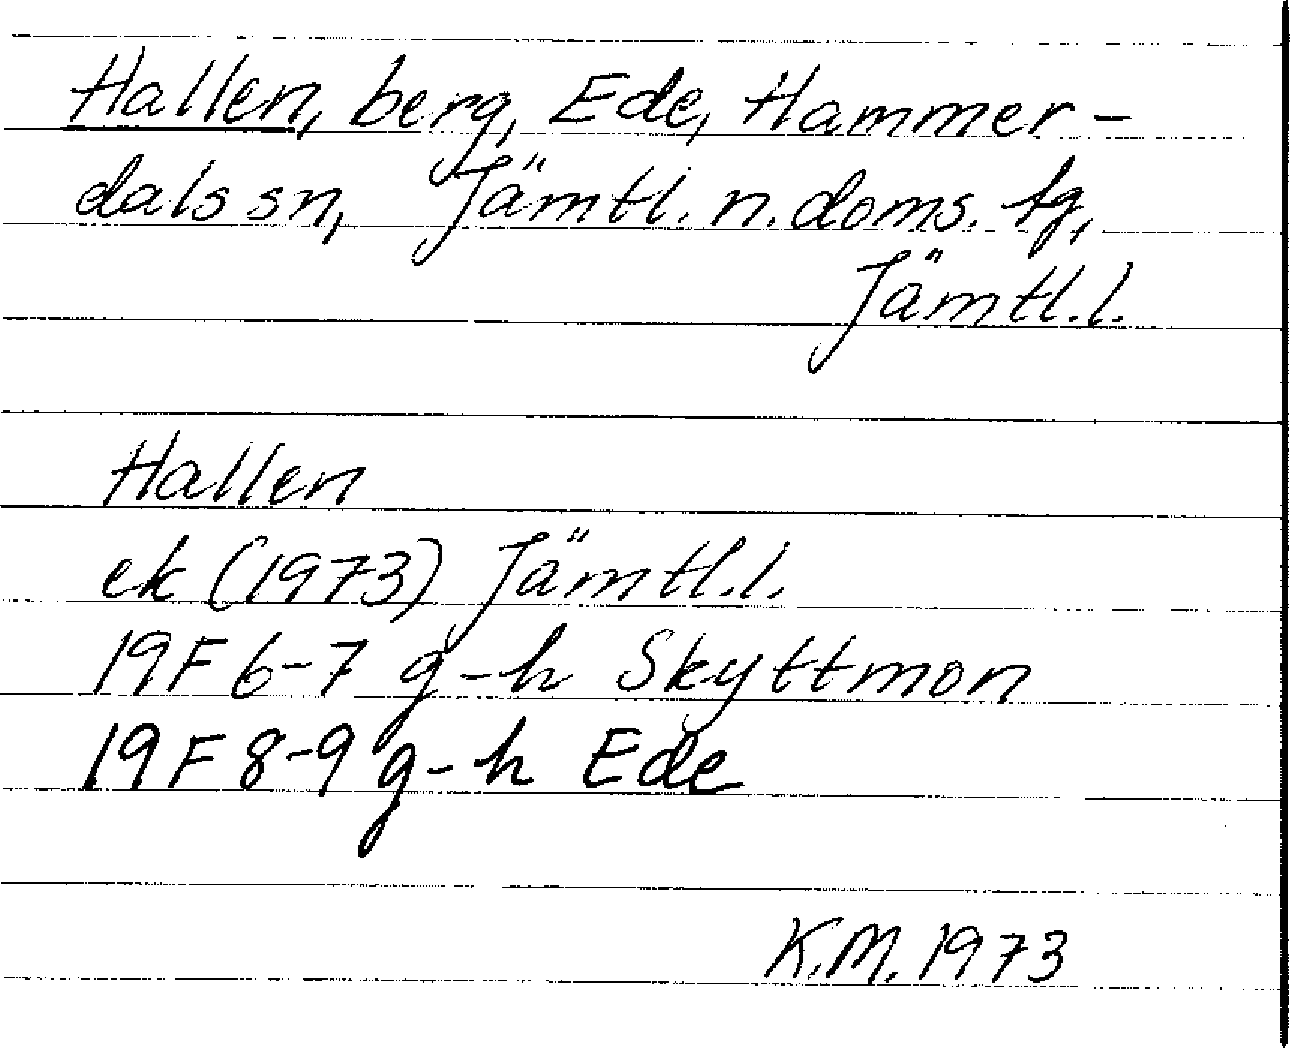 Hallen, berg, Ede, Hammer-
dals sn, Jämtl. n. doms. tg,
Jämtl. l.
Hallen
ek (1973) Jämtl. l.
19F 6-7 g-h Skyttmon
19F 8-9 g-h Ede
K.M. 1973